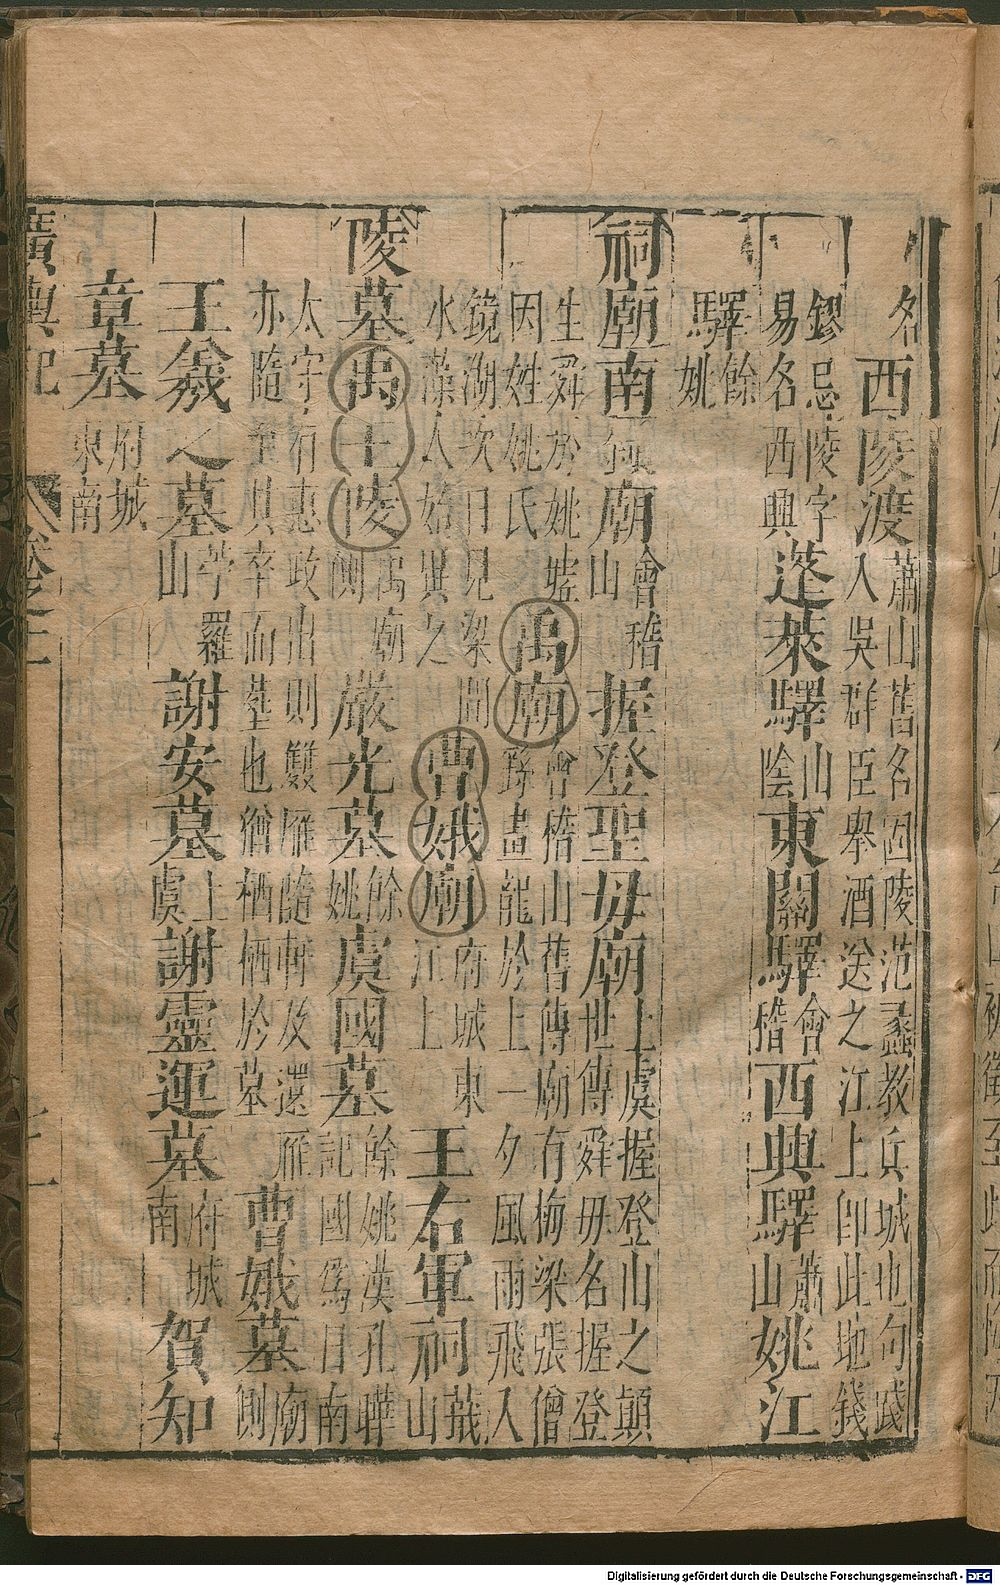 名西陵渡蕭山舊名固陵范蠡敎兵城也句踐
入吳群臣舉酒送之江上卽此地錢
鏐忌陵字
易名西興蓬萊驛山
陰東關驛會
稽西興驛蕭
山姚江
驛餘
姚
祠廟南鎮廟會稽
山握登聖母廟上虞握登山之顛
世傳舜母名握登
生舜於姚墟
因姓姚氏禹廟會稽山舊傳廟有梅梁張僧
繇畫龍於上一夕風雨飛入
鏡湖次日見梁間
水藻人始異之曹娥廟府城東
江上王右軍祠蕺
山
陵墓禹王陵禹廟
側嚴光墓餘
姚虞國墓餘姚漢孔曄
記國爲日南
太守有惠政出則雙雁隨軒及還雁
亦隨至其卒而塟也猶栖栖於墓曹娥墓廟
側
王羲之墓苧羅
山謝安墓上
虞謝靈運墓府城
南賀知
章墓府城
東南
廣輿記
卷之十一
Digitalisierung gefördert durch die Deutsche Forschungsgemeinschaft - DFG